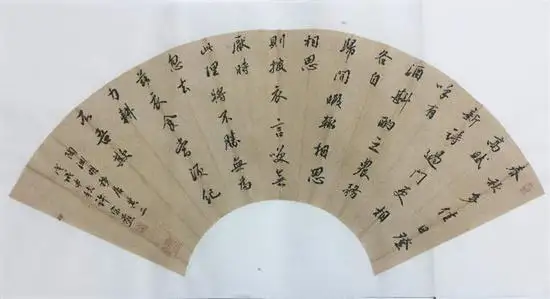 春秋多佳日登
高賦
新詩過門更相
呼有
酒斟酌之農務
各自
歸閒暇輒相思
相思
則披衣言笑無
厭時
此理將不勝無為
忽去
茲衣食當須紀
力耕
不吾欺
陶淵明移居其二
戊戌年秋許